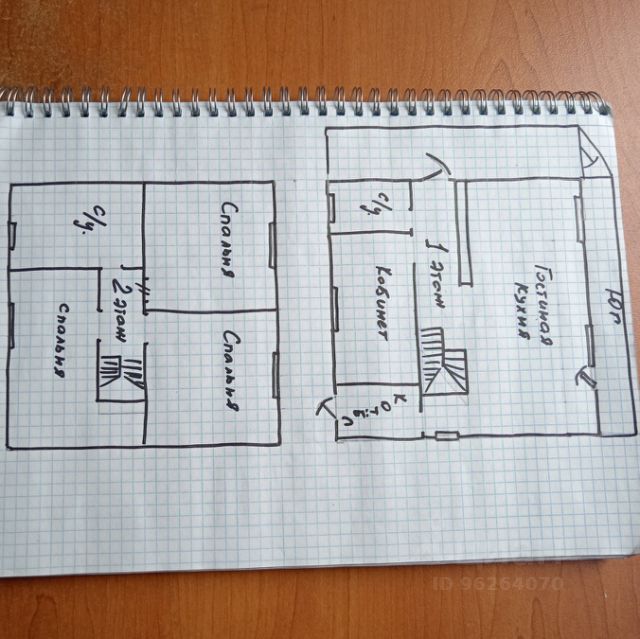 с/у.
1 этаж
Гостиная
Кухня
Кабинет
Котёл
с/у.
Спальня
2 этаж
Спальня
Спальня
ID 96264070